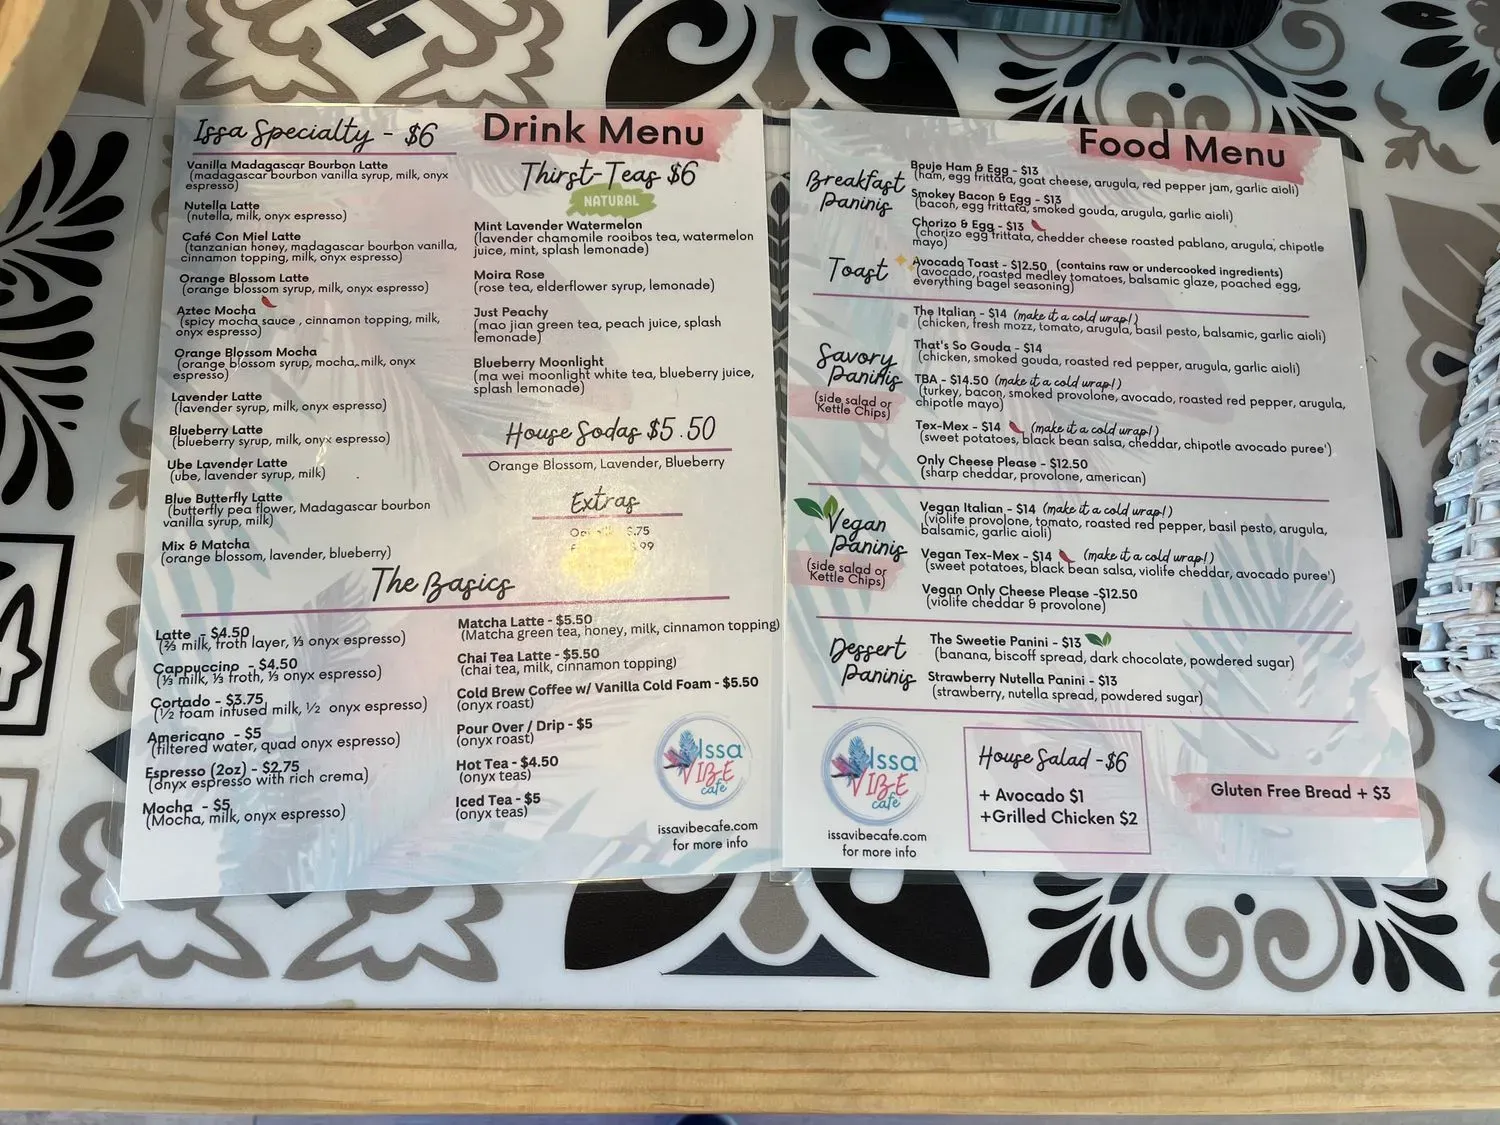 Issa Specialty - $6
Drink Menu
Vanilla Madagascar Bourbon Latte
(madagascar bourbon vanilla syrup, milk, onyx
espresso)
Nutella Latte
(nutella, milk, onyx espresso)
Café Con Miel Latte
(tanzanian honey, madagascar bourbon vanilla,
cinnamon topping, milk, onyx espresso)
Orange Blossom Latte
(orange blossom syrup, milk, onyx espresso)
Aztec Mocha
(spicy mocha sauce , cinnamon topping, milk,
onyx espresso)
Orange Blossom Mocha
(orange blossom syrup, mocha, milk, onyx
espresso)
Lavender Latte
(lavender syrup, milk, onyx espresso)
Blueberry Latte
(blueberry syrup, milk, onyx espresso)
Ube Lavender Latte
(ube, lavender syrup, milk)
Blue Butterfly Latte
(butterfly pea flower, Madagascar bourbon
vanilla syrup, milk)
Mix & Matcha
(orange blossom, lavender, blueberry)
Thirst-Teas $6
NATURAL
Mint Lavender Watermelon
(lavender chamomile rooibos tea, watermelon
juice, mint, splash lemonade)
Moira Rose
(rose tea, elderflower syrup, lemonade)
Just Peachy
(mao jian green tea, peach juice, splash
lemonade)
Blueberry Moonlight
(ma wei moonlight white tea, blueberry juice,
splash lemonade)
House Sodas $5.50
Orange Blossom, Lavender, Blueberry
Extras
The Basics
Latte - $4.50
(⅔ milk, froth layer, ⅓ onyx espresso)
Cappuccino - $4.50
(⅓ milk, ⅓ froth, ⅓ onyx espresso)
Cortado - $3.75
(½ foam infused milk, ½ onyx espresso)
Americano - $5
(filtered water, quad onyx espresso)
Espresso (2oz) - $2.75
(onyx espresso with rich crema)
Mocha - $5
(Mocha, milk, onyx espresso)
Matcha Latte - $5.50
(Matcha green tea, honey, milk, cinnamon topping)
Chai Tea Latte - $5.50
(chai tea, milk, cinnamon topping)
Cold Brew Coffee w/ Vanilla Cold Foam - $5.50
(onyx roast)
Pour Over / Drip - $5
(onyx roast)
Hot Tea - $4.50
(onyx teas)
Iced Tea - $5
(onyx teas)
Issa
VIBE
cafe
issavibecafe.com
for more info
Food Menu
Breakfast
Paninis
Bouje Ham & Egg - $13
(ham, egg frittata, goat cheese, arugula, red pepper jam, garlic aioli)
Smokey Bacon & Egg - $13
(bacon, egg frittata, smoked gouda, arugula, garlic aioli)
Chorizo & Egg - $13
(chorizo egg frittata, chedder cheese roasted pablano, arugula, chipotle
mayo)
Toast
Avocado Toast - $12.50 (contains raw or undercooked ingredients)
(avocado, roasted medley tomatoes, balsamic glaze, poached egg,
everything bagel seasoning)
Savory
Paninis
(side salad or
Kettle Chips)
The Italian - $14 (make it a cold wrap!)
(chicken, fresh mozz, tomato, arugula, basil pesto, balsamic, garlic aioli)
That's So Gouda - $14
(chicken, smoked gouda, roasted red pepper, arugula, garlic aioli)
TBA - $14.50 (make it a cold wrap!)
(turkey, bacon, smoked provolone, avocado, roasted red pepper, arugula,
chipotle mayo)
Tex-Mex - $14 (make it a cold wrap!)
(sweet potatoes, black bean salsa, cheddar, chipotle avocado puree')
Only Cheese Please - $12.50
(sharp cheddar, provolone, american)
Vegan
Paninis
(side salad or
Kettle Chips)
Vegan Italian - $14 (make it a cold wrap!)
(violife provolone, tomato, roasted red pepper, basil pesto, arugula,
balsamic, garlic aioli)
Vegan Tex-Mex - $14 (make it a cold wrap!)
(sweet potatoes, black bean salsa, violife cheddar, avocado puree')
Vegan Only Cheese Please -$12.50
(violife cheddar & provolone)
Dessert
Paninis
The Sweetie Panini - $13
(banana, biscoff spread, dark chocolate, powdered sugar)
Strawberry Nutella Panini - $13
(strawberry, nutella spread, powdered sugar)
Issa
VIBE
cafe
issavibecafe.com
for more info
House Salad -$6
+ Avocado $1
+Grilled Chicken $2
Gluten Free Bread + $3